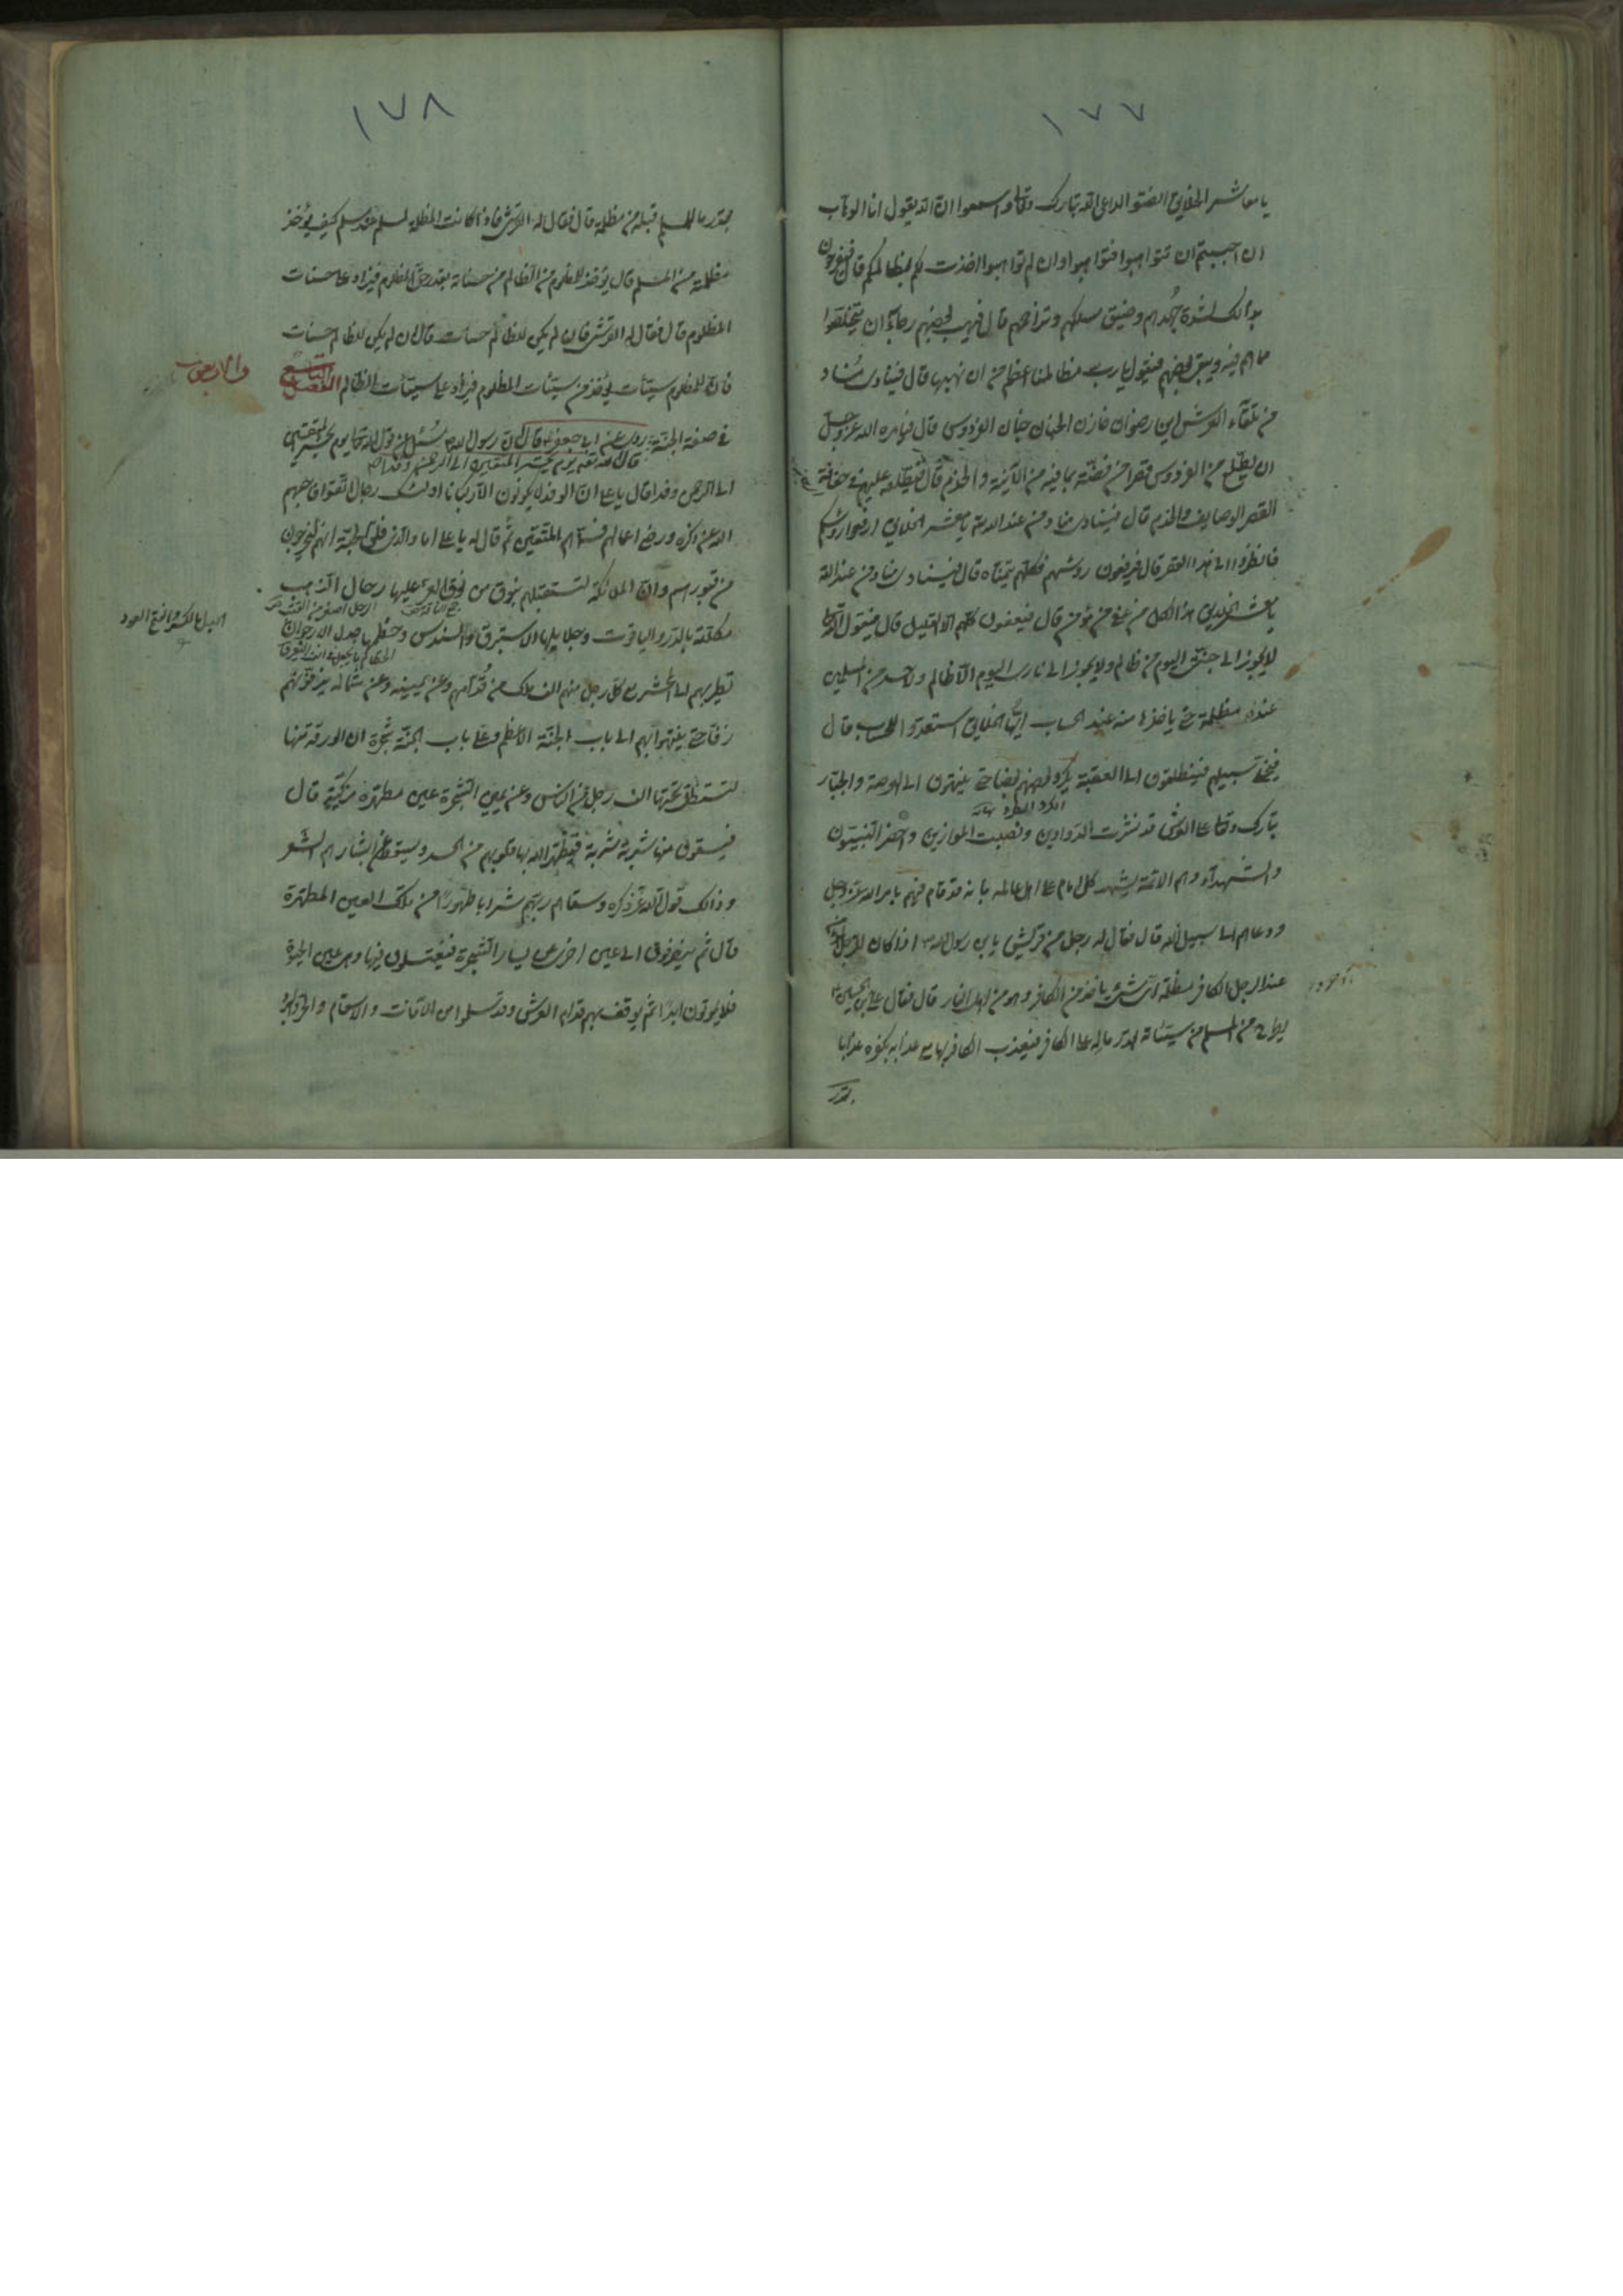 ١٧٧
يا معاشر الخلايق انصتوا لداعي الله تبارك وتعالى واسمعوا ان الله يقول انا الوهاب
ان احببتم ان تتواهبوا فتواهبوا وان لم تواهبوا اخذت لكم بمظالمكم قال فيفرحون
بذالك لشدة جهدهم وضيق مسلكهم وتزاحمهم قال فيهب بعضهم رجاء ان يتخلصوا
مما هم فيه ويبقى بعضهم فيقول يا رب مظالمنا اعظم من ان نهبها قال فينادى مناد
من تلقاء العرش اين رضوان خازن الجنان جنان الفردوس قال فيامره الله عز وجل
ان يطلع من الفردوس قصرا من فضة بما فيه من الآنية والخدم قال فيطلعه عليهم في حفافة
القصر الوصايف والخدم قال فينادى مناد من عند الله يا معشر الخلايق ارفعوا رؤسكم
فانظروا الى هذا القصر قال فيرفعون رؤسهم فكلهم يتمناه قال فينادى مناد من عند الله
يا معشر الخلايق هذا لكل من عفى عن مؤمن قال فيعفون كلهم الا القليل قال فيقول الله تعالى
لا يجوز الى جنتى اليوم من ظالم ولا يجوز الى نارى اليوم الا ظالم ولاحد من المسلمين
عنده مظلمة حتى ياخذها منه عند الحساب ايها الخلايق استعدوا للحساب قال
فيخلى سبيلهم فينطلقون الى العقبة يكرد بعضهم بعضا حتى ينتهون الى العرصة والجبار
الكرد الطرد نهاية
تبارك وتعالى على العرش قد نشرت الدواوين ونصبت الموازين واحضر النبيون
والشهدآء وهم الائمة يشهد كل امام على اهل عالمه بانه قد قام فيهم بامر الله عز وجل
ودعاهم الى سبيل الله قال فقال له رجل من قريش يابن رسول الله اذا كان للرجل المؤمن
عند الرجل الكافر مظلمة اى شئ ياخذ من الكافر وهو من اهل النار قال فقال على بن الحسين
يطرح من المسلم من سيئاته بقدر ماله على الكافر فيعذب الكافر بها مع عذابه بكفره عذابا
بقدر
١٧٨
بقدر ما للمسلم قبله من مظلمة قال فقال له القرشى فاذا كانت المظلمة لمسلم عند مسلم كيف يؤخذ
مظلمة من المسلم قال يؤخذ للمظلوم من الظالم من حسناته بقدر حق المظلوم فيزاد على حسنات
المظلوم قال فقال له القرشى فان لم يكن للظالم حسنات قال ان لم يكن للظالم حسنات
فان للمظلوم سيئات يؤخذ من سيئات المظلوم فيزاد على سيئات الظالم الفصل التاسع
والاربعون
فى صفة الجنة روى عن ابى جعفر قال ان رسول الله سئل عن قول الله تعالى يوم نحشر المتقين
الى الرحمن وفدا قال يا على ان الوفد لا يكونون الا ركبانا اولئك رجال اتقوا فاحبهم
الله عز ذكره ورضى اعمالهم فسماهم المتقين ثم قال له يا على اما والذى فلق الحبة انهم ليخرجون
من قبورهم وان الملائكة لتستقبلهم بنوق من نوق العز عليها رحال الذهب
مكللة بالدر والياقوت وجلايلها الاستبرق والسندس وخطمها جدل الارجوان
الجدل بالكسر والفتح العود
تطير بهم الى المحشر مع كل رجل منهم الف ملك من قدامهم وعن يمينه وعن شماله يزفونهم
زفا حتى ينتهوا بهم الى باب الجنة الاعظم وعلى باب الجنة شجرة ان الورقة منها
لتستظل تحتها الف رجل من الناس وعن يمين الشجرة عين مطهرة مزكية قال
فيسقون منها شربة شربة فيطهر الله بها قلوبهم من الحسد ويسقط عن ابشارهم الشعر
وذالك قول الله عز ذكره وسقاهم ربهم شرابا طهورا من تلك العين المطهرة
قال ثم يصرفون الى عين اخرى عن يسار الشجرة فيغتسلون فيها وهى عين الحيوة
فلا يموتون ابدا ثم يوقف بهم قدام العرش وقد سلموا من الآفات والاسقام والحر والبرد